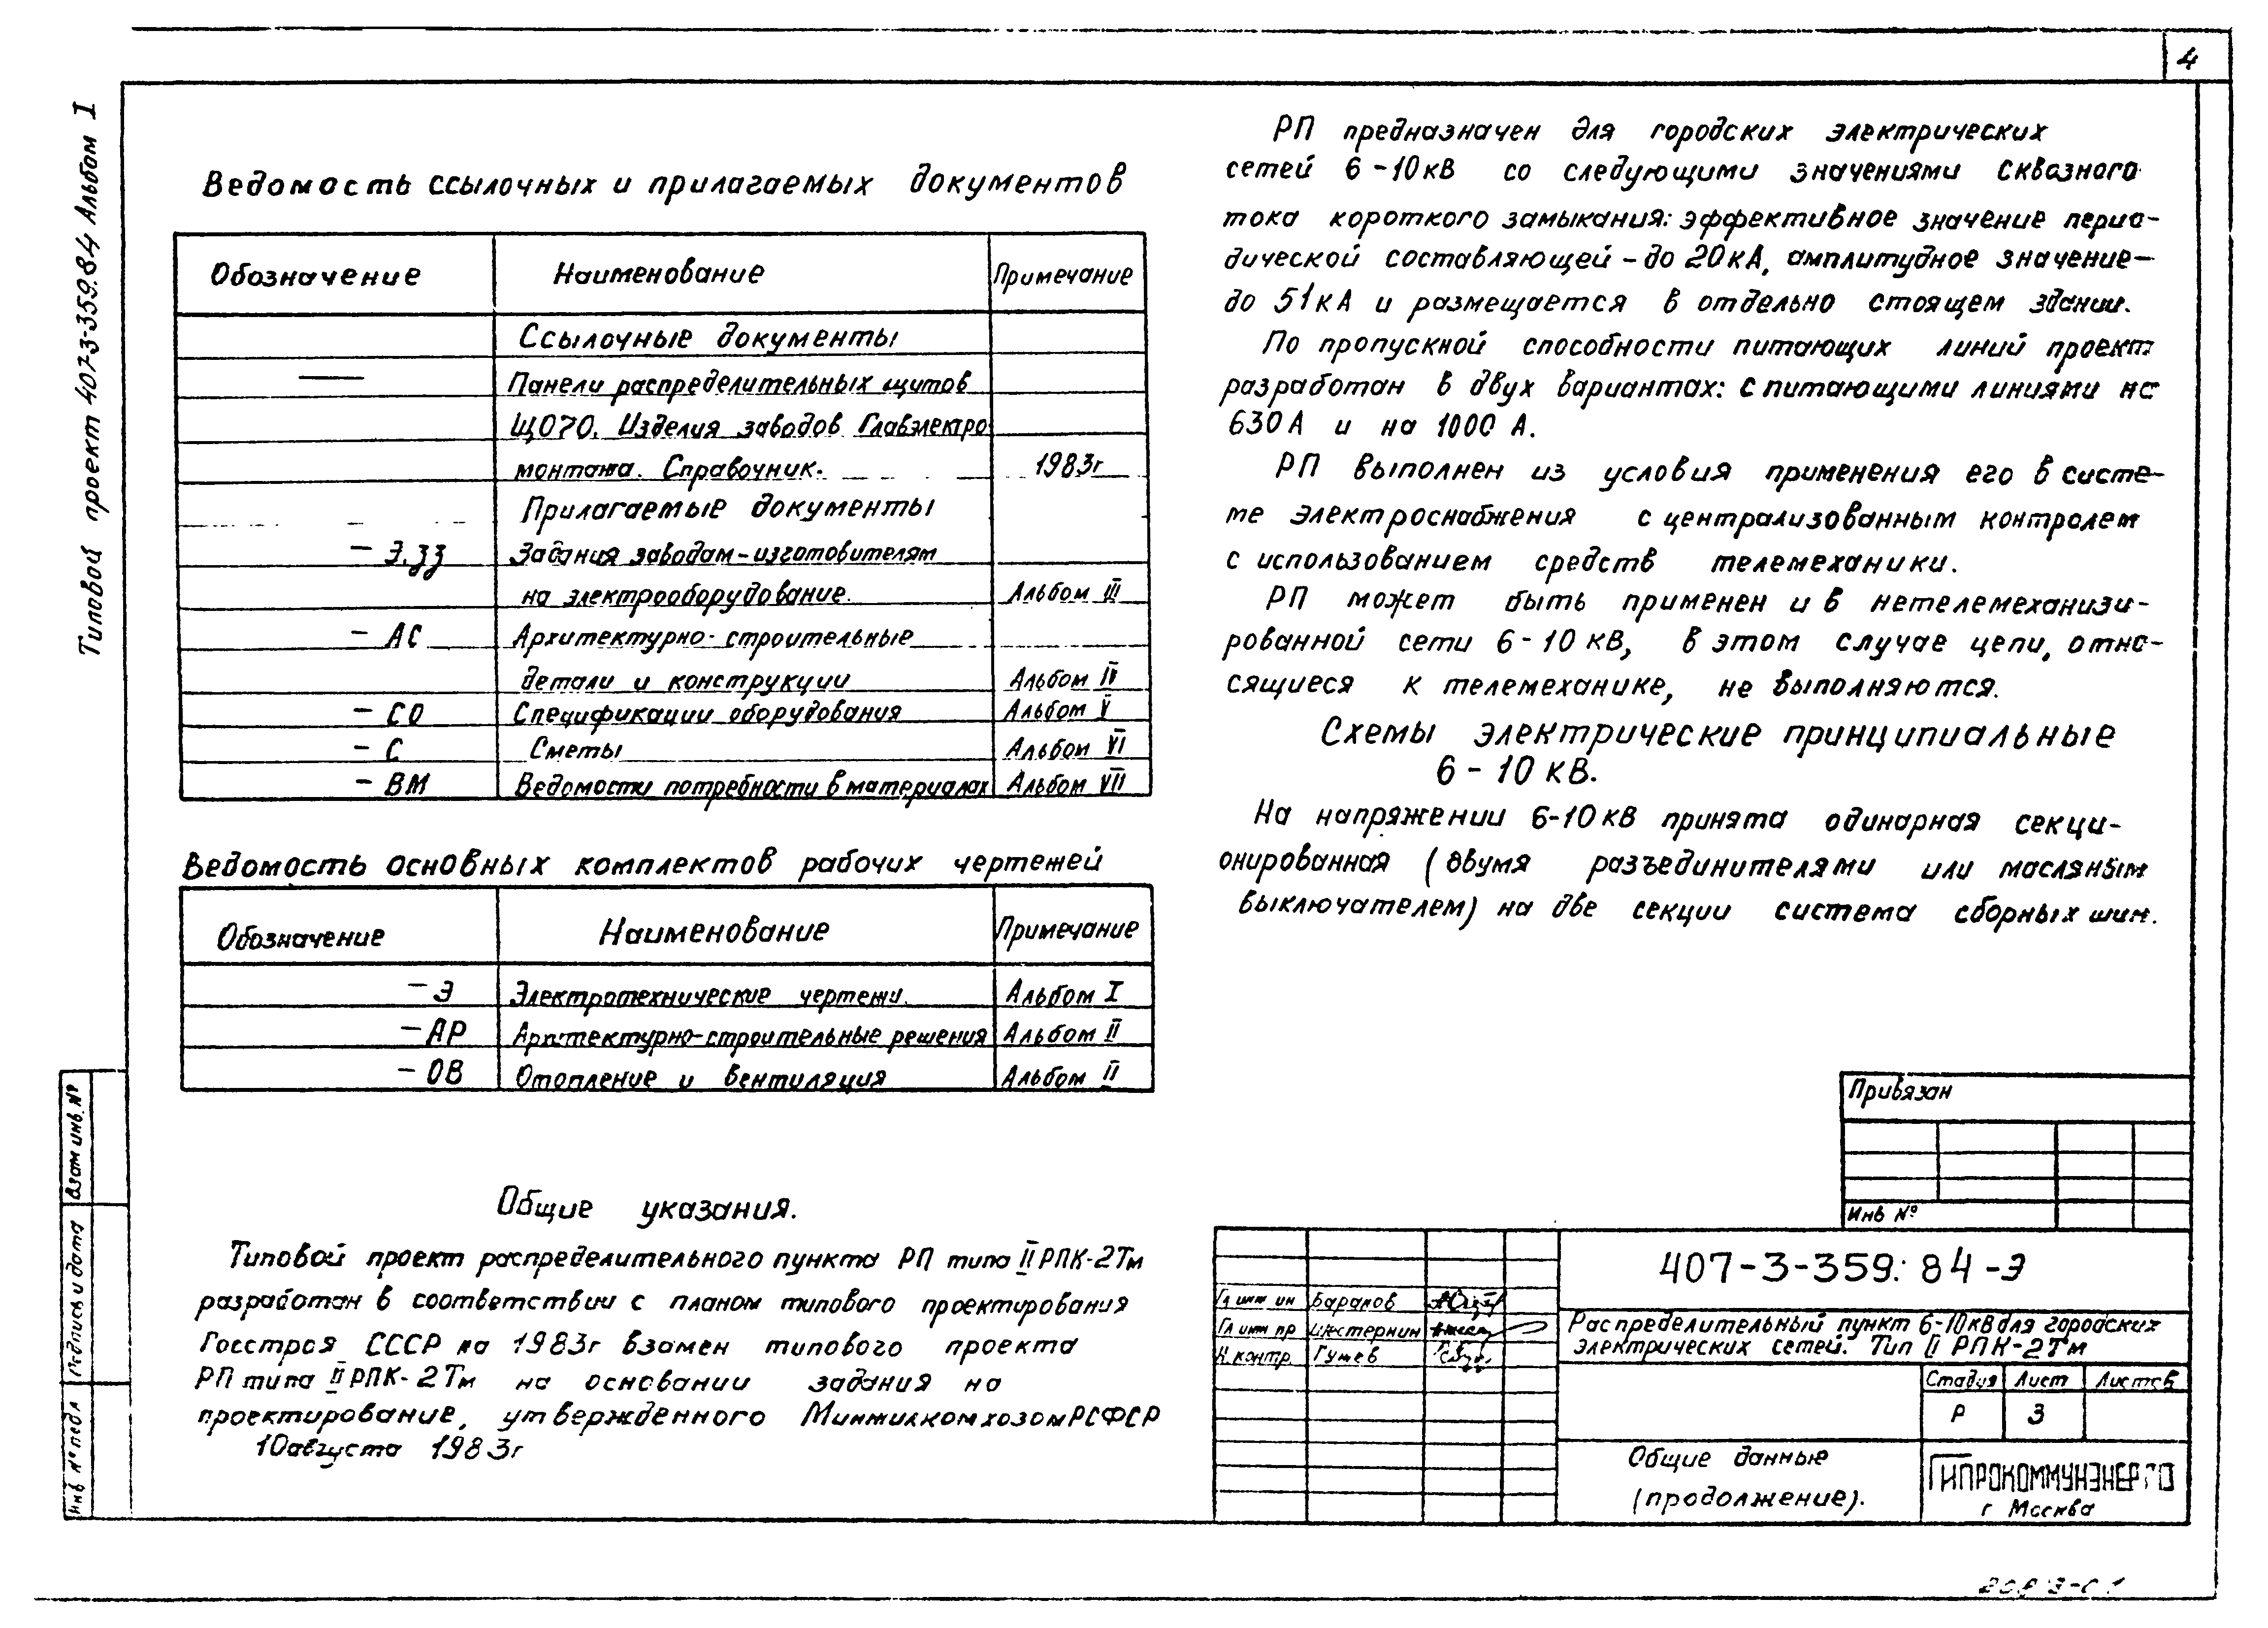 4
Типовой проект 407-3-359.84 Альбом I
Ведомость ссылочных и прилагаемых документов
Обозначение Наименование Примечание
Ссылочные документы
— Панели распределительных щитов
ЩО70. Изделия заводов Главэлектро
монтажа. Справочник. 1983г
Прилагаемые документы
— Э.ЗЗ Задания заводам-изготовителям
на электрооборудование. Альбом III
— АС Архитектурно-строительные
детали и конструкции Альбом IV
— СО Спецификации оборудования Альбом V
— С Сметы Альбом VI
— ВМ Ведомости потребности в материалах Альбом VII
Ведомость основных комплектов рабочих чертежей
Обозначение Наименование Примечание
— Э Электротехнические чертежи. Альбом I
— АР Архитектурно-строительные решения Альбом II
— ОВ Отопление и вентиляция Альбом II
Общие указания.
Типовой проект распределительного пункта РП типа II РПК-2Тм
разработан в соответствии с планом типового проектирования
Госстроя СССР на 1983г взамен типового проекта
РП типа II РПК-2Тм на основании задания на
проектирование, утвержденного Минжилкомхозом РСФСР
10 августа 1983г
РП предназначен для городских электрических
сетей 6-10кВ со следующими значениями сквозного
тока короткого замыкания: эффективное значение перио-
дической составляющей - до 20кА, амплитудное значение-
до 51кА и размещается в отдельно стоящем здании.
По пропускной способности питающих линий проект
разработан в двух вариантах: с питающими линиями на
630А и на 1000 А.
РП выполнен из условия применения его в систе-
ме электроснабжения с централизованным контролем
с использованием средств телемеханики.
РП может быть применен и в нетелемеханизи-
рованной сети 6-10 кВ, в этом случае цепи, отно-
сящиеся к телемеханике, не выполняются.
Схемы электрические принципиальные
6-10 кВ.
На напряжении 6-10кВ принята одинарная секци-
онированная (двумя разъединителями или масляным
выключателем) на две секции система сборных шин.
Привязан
Инв №
407-3-359.84-Э
Гл инж ин Баранов
Гл инж пр Шестернин
Н.контр. Гужев
Распределительный пункт 6-10кВ для городских
электрических сетей. Тип II РПК-2Тм
Стадия Лист Листов
Р 3
Общие данные
(продолжение).
ГИПРОКОММУНЭНЕРГО
г Москва
Взам инв. №
Подпись и дата
Инв № подл